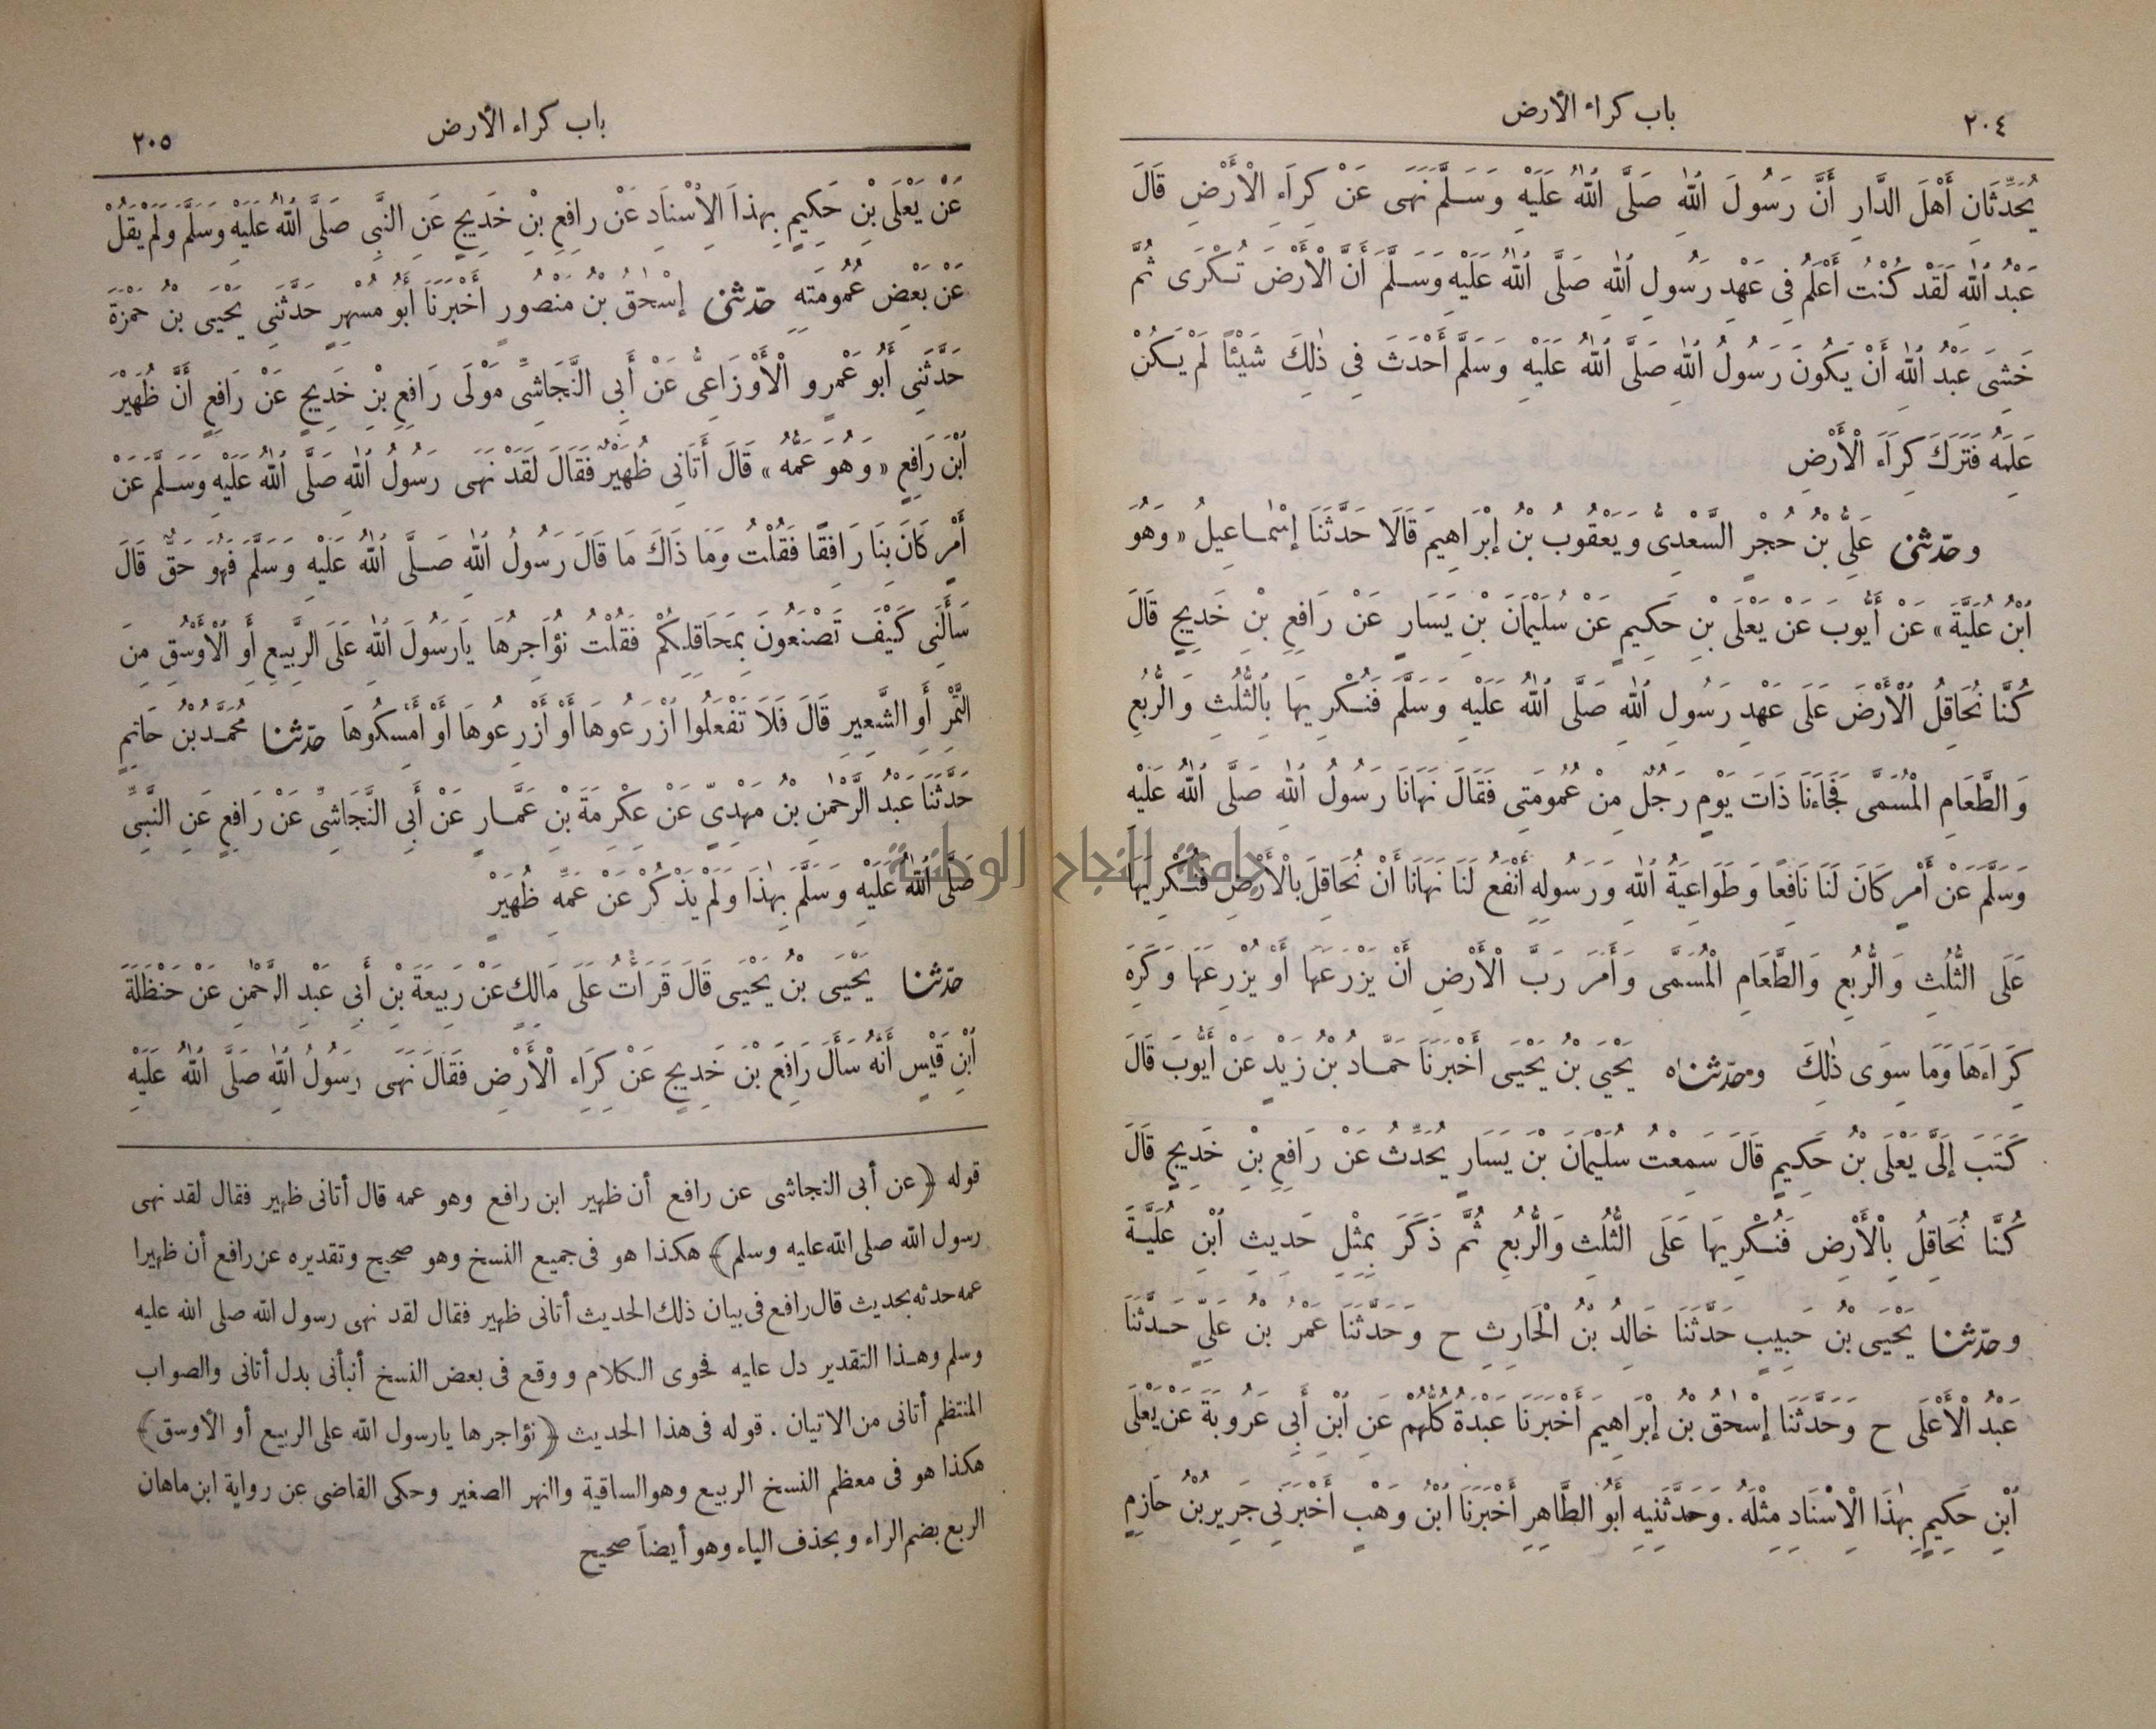 ٢٠٤
باب كراء الأرض
يُحَدِّثَانِ أَهْلَ الدَّارِ أَنَّ رَسُولَ اللّٰهِ صَلَّى اللّٰهُ عَلَيْهِ وَسَلَّمَ نَهَى عَنْ كِرَاءِ الْأَرْضِ قَالَ
عَبْدُ اللّٰهِ لَقَدْ كُنْتُ أَعْلَمُ فِى عَهْدِ رَسُولِ اللّٰهِ صَلَّى اللّٰهُ عَلَيْهِ وَسَلَّمَ أَنَّ الْأَرْضَ تُكْرَى ثُمَّ
خَشِىَ عَبْدُ اللّٰهِ أَنْ يَكُونَ رَسُولُ اللّٰهِ صَلَّى اللّٰهُ عَلَيْهِ وَسَلَّمَ أَحْدَثَ فِى ذٰلِكَ شَيْئًا لَمْ يَكُنْ
عَلِمَهُ فَتَرَكَ كِرَاءَ الْأَرْضِ
وحدّثنى عَلِىُّ بْنُ حُجْرٍ السَّعْدِىُّ وَيَعْقُوبُ بْنُ إِبْرَاهِيمَ قَالَا حَدَّثَنَا إِسْمَاعِيلُ «وَهُوَ
ابْنُ عُلَيَّةَ» عَنْ أَيُّوبَ عَنْ يَعْلَى بْنِ حَكِيمٍ عَنْ سُلَيْمَانَ بْنِ يَسَارٍ عَنْ رَافِعِ بْنِ خَدِيجٍ قَالَ
كُنَّا نُحَاقِلُ الْأَرْضَ عَلَى عَهْدِ رَسُولِ اللّٰهِ صَلَّى اللّٰهُ عَلَيْهِ وَسَلَّمَ فَنُكْرِيهَا بِالثُّلُثِ وَالرُّبُعِ
وَالطَّعَامِ الْمُسَمَّى فَجَاءَنَا ذَاتَ يَوْمٍ رَجُلٌ مِنْ عُمُومَتِى فَقَالَ نَهَانَا رَسُولُ اللّٰهِ صَلَّى اللّٰهُ عَلَيْهِ
وَسَلَّمَ عَنْ أَمْرٍ كَانَ لَنَا نَافِعًا وَطَوَاعِيَةُ اللّٰهِ وَرَسُولِهِ أَنْفَعُ لَنَا نَهَانَا أَنْ نُحَاقِلَ بِالْأَرْضِ فَنُكْرِيَهَا
عَلَى الثُّلُثِ وَالرُّبُعِ وَالطَّعَامِ الْمُسَمَّى وَأَمَرَ رَبَّ الْأَرْضِ أَنْ يَزْرَعَهَا أَوْ يُزْرِعَهَا وَكَرِهَ
كِرَاءَهَا وَمَا سِوَى ذٰلِكَ وحدّثناه يَحْيَى بْنُ يَحْيَى أَخْبَرَنَا حَمَّادُ بْنُ زَيْدٍ عَنْ أَيُّوبَ قَالَ
كَتَبَ إِلَىَّ يَعْلَى بْنُ حَكِيمٍ قَالَ سَمِعْتُ سُلَيْمَانَ بْنَ يَسَارٍ يُحَدِّثُ عَنْ رَافِعِ بْنِ خَدِيجٍ قَالَ
كُنَّا نُحَاقِلُ بِالْأَرْضِ فَنُكْرِيهَا عَلَى الثُّلُثِ وَالرُّبُعِ ثُمَّ ذَكَرَ بِمِثْلِ حَدِيثِ ابْنِ عُلَيَّةَ
وحدّثنا يَحْيَى بْنُ حَبِيبٍ حَدَّثَنَا خَالِدُ بْنُ الْحَارِثِ ح وَحَدَّثَنَا عَمْرُ بْنُ عَلِىٍّ حَدَّثَنَا
عَبْدُ الْأَعْلَى ح وَحَدَّثَنَا إِسْحٰقُ بْنُ إِبْرَاهِيمَ أَخْبَرَنَا عَبْدَةُ كُلُّهُمْ عَنِ ابْنِ أَبِى عَرُوبَةَ عَنْ يَعْلَى
ابْنِ حَكِيمٍ بِهٰذَا الْإِسْنَادِ مِثْلَهُ. وَحَدَّثَنِيهِ أَبُو الطَّاهِرِ أَخْبَرَنَا ابْنُ وَهْبٍ أَخْبَرَنِى جَرِيرُ بْنُ حَازِمٍ
باب كراء الأرض
٢٠٥
عَنْ يَعْلَى بْنِ حَكِيمٍ بِهٰذَا الْإِسْنَادِ عَنْ رَافِعِ بْنِ خَدِيجٍ عَنِ النَّبِىِّ صَلَّى اللّٰهُ عَلَيْهِ وَسَلَّمَ وَلَمْ يَقُلْ
عَنْ بَعْضِ عُمُومَتِهِ حدّثنى إِسْحٰقُ بْنُ مَنْصُورٍ أَخْبَرَنَا أَبُو مُسْهِرٍ حَدَّثَنِى يَحْيَى بْنُ حَمْزَةَ
حَدَّثَنِى أَبُو عَمْرٍو الْأَوْزَاعِىُّ عَنْ أَبِى النَّجَاشِىِّ مَوْلَى رَافِعِ بْنِ خَدِيجٍ عَنْ رَافِعٍ أَنَّ ظُهَيْرَ
ابْنَ رَافِعٍ «وَهُوَ عَمُّهُ» قَالَ أَتَانِى ظُهَيْرٌ فَقَالَ لَقَدْ نَهَى رَسُولُ اللّٰهِ صَلَّى اللّٰهُ عَلَيْهِ وَسَلَّمَ عَنْ
أَمْرٍ كَانَ بِنَا رَافِقًا فَقُلْتُ وَمَا ذَاكَ مَا قَالَ رَسُولُ اللّٰهِ صَلَّى اللّٰهُ عَلَيْهِ وَسَلَّمَ فَهُوَ حَقٌّ قَالَ
سَأَلَنِى كَيْفَ تَصْنَعُونَ بِمَحَاقِلِكُمْ فَقُلْتُ نُؤَاجِرُهَا يَارَسُولَ اللّٰهِ عَلَى الرَّبِيعِ أَوِ الْأَوْسُقِ مِنَ
التَّمْرِ أَوِ الشَّعِيرِ قَالَ فَلَا تَفْعَلُوا ازْرَعُوهَا أَوْ أَزْرِعُوهَا أَوْ أَمْسِكُوهَا حدّثنا مُحَمَّدُ بْنُ حَاتِمٍ
حَدَّثَنَا عَبْدُ الرَّحْمٰنِ بْنُ مَهْدِىٍّ عَنْ عِكْرِمَةَ بْنِ عَمَّارٍ عَنْ أَبِى النَّجَاشِىِّ عَنْ رَافِعٍ عَنِ النَّبِىِّ
صَلَّى اللّٰهُ عَلَيْهِ وَسَلَّمَ بِهٰذَا وَلَمْ يَذْكُرْ عَنْ عَمِّهِ ظُهَيْرٍ
حدّثنا يَحْيَى بْنُ يَحْيَى قَالَ قَرَأْتُ عَلَى مَالِكٍ عَنْ رَبِيعَةَ بْنِ أَبِى عَبْدِ الرَّحْمٰنِ عَنْ حَنْظَلَةَ
ابْنِ قَيْسٍ أَنَّهُ سَأَلَ رَافِعَ بْنَ خَدِيجٍ عَنْ كِرَاءِ الْأَرْضِ فَقَالَ نَهَى رَسُولُ اللّٰهِ صَلَّى اللّٰهُ عَلَيْهِ
قوله ﴿عن أبى النجاشى عن رافع أن ظهير ابن رافع وهو عمه قال أتانى ظهير فقال لقد نهى
رسول الله صلى الله عليه وسلم﴾ هكذا هو فى جميع النسخ وهو صحيح وتقديره عن رافع أن ظهيرا
عمه حدثه بحديث قال رافع فى بيان ذلك الحديث أتانى ظهير فقال لقد نهى رسول الله صلى الله عليه
وسلم وهذا التقدير دل عليه فحوى الكلام ووقع فى بعض النسخ أنبأنى بدل أتانى والصواب
المنتظم أتانى من الاتيان. قوله فى هذا الحديث ﴿نؤاجرها يارسول الله على الربيع أو الأوسق﴾
هكذا هو فى معظم النسخ الربيع وهو الساقية والنهر الصغير وحكى القاضى عن رواية ابن ماهان
الربع بضم الراء وبحذف الياء وهو أيضاً صحيح
جامعة النجاح الوطنية